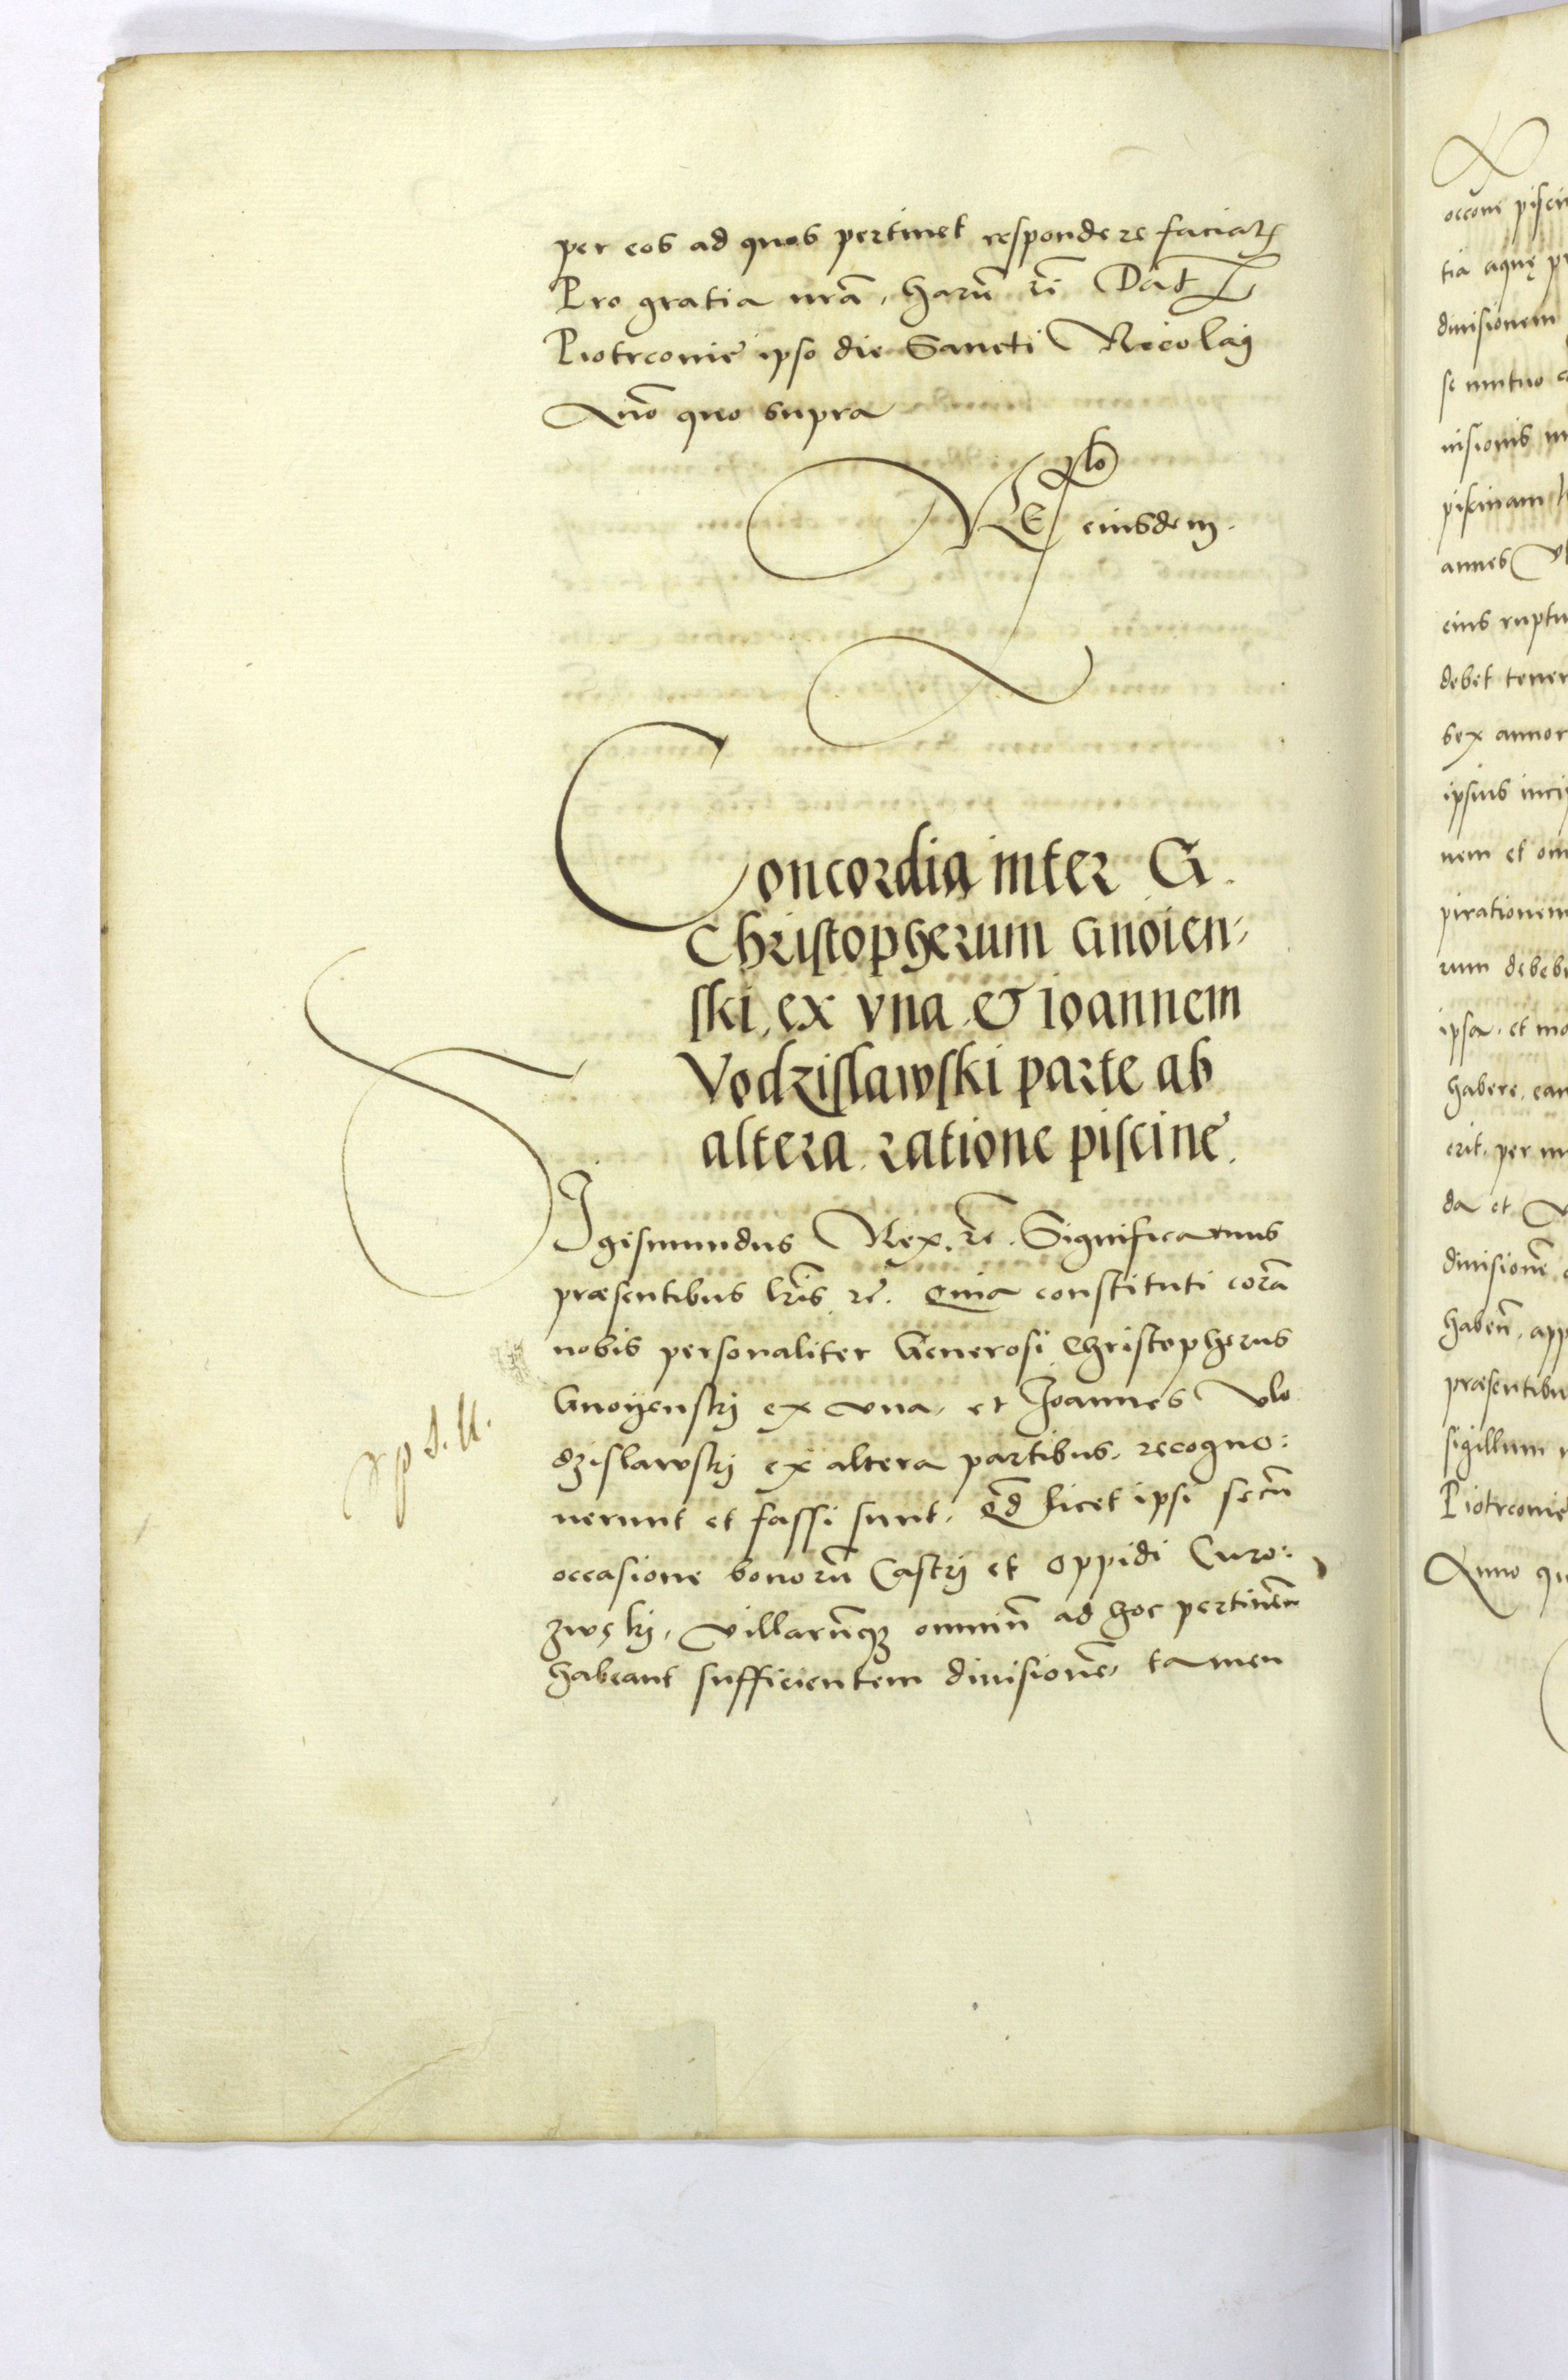 per eos ad quos pertinet respondere faciatis
Pro gratia nrã, harũ rĩ Dat
Piotrconie ipso die Sancti Nicolaij
Año quo supra
Relo eiusdem.
Concordia inter G.
Christopherum Gnoien-
ski, ex vna & ioannem
Vodzislawski parte ab
altera. ratione piscine.
Sigismundus Rex. rc̃. Significamus
præsentibus lr̃is rc̃. Quia constituti corã
nobis personaliter Generosi Christopherus
Gnoyenskj ex vna, et Joannes Vlo
dzislawskj ex altera partibus, recogno:
uerunt et fassi sunt, Qđ licet ipsi secũ
occasione bonorũ Castrj et oppidi Curo:
zwękj, villarũq; omniũ ad hoc pertineñ
habeant sufficientem diuisionẽ, tamen
occõne pisci
tia aquę p
diuisionem
se mutuo
uisionis
piscinam
annes Vl
eius ruptu
debet tener
sex annor
ipsius inci
nem et om
pirationem
rum debeb
ipsa, et mo
habere, ea
erit, per
da et
diuisionẽ
habeñ, app
præsentibu
sigillum
Piotrconie
Anno qu